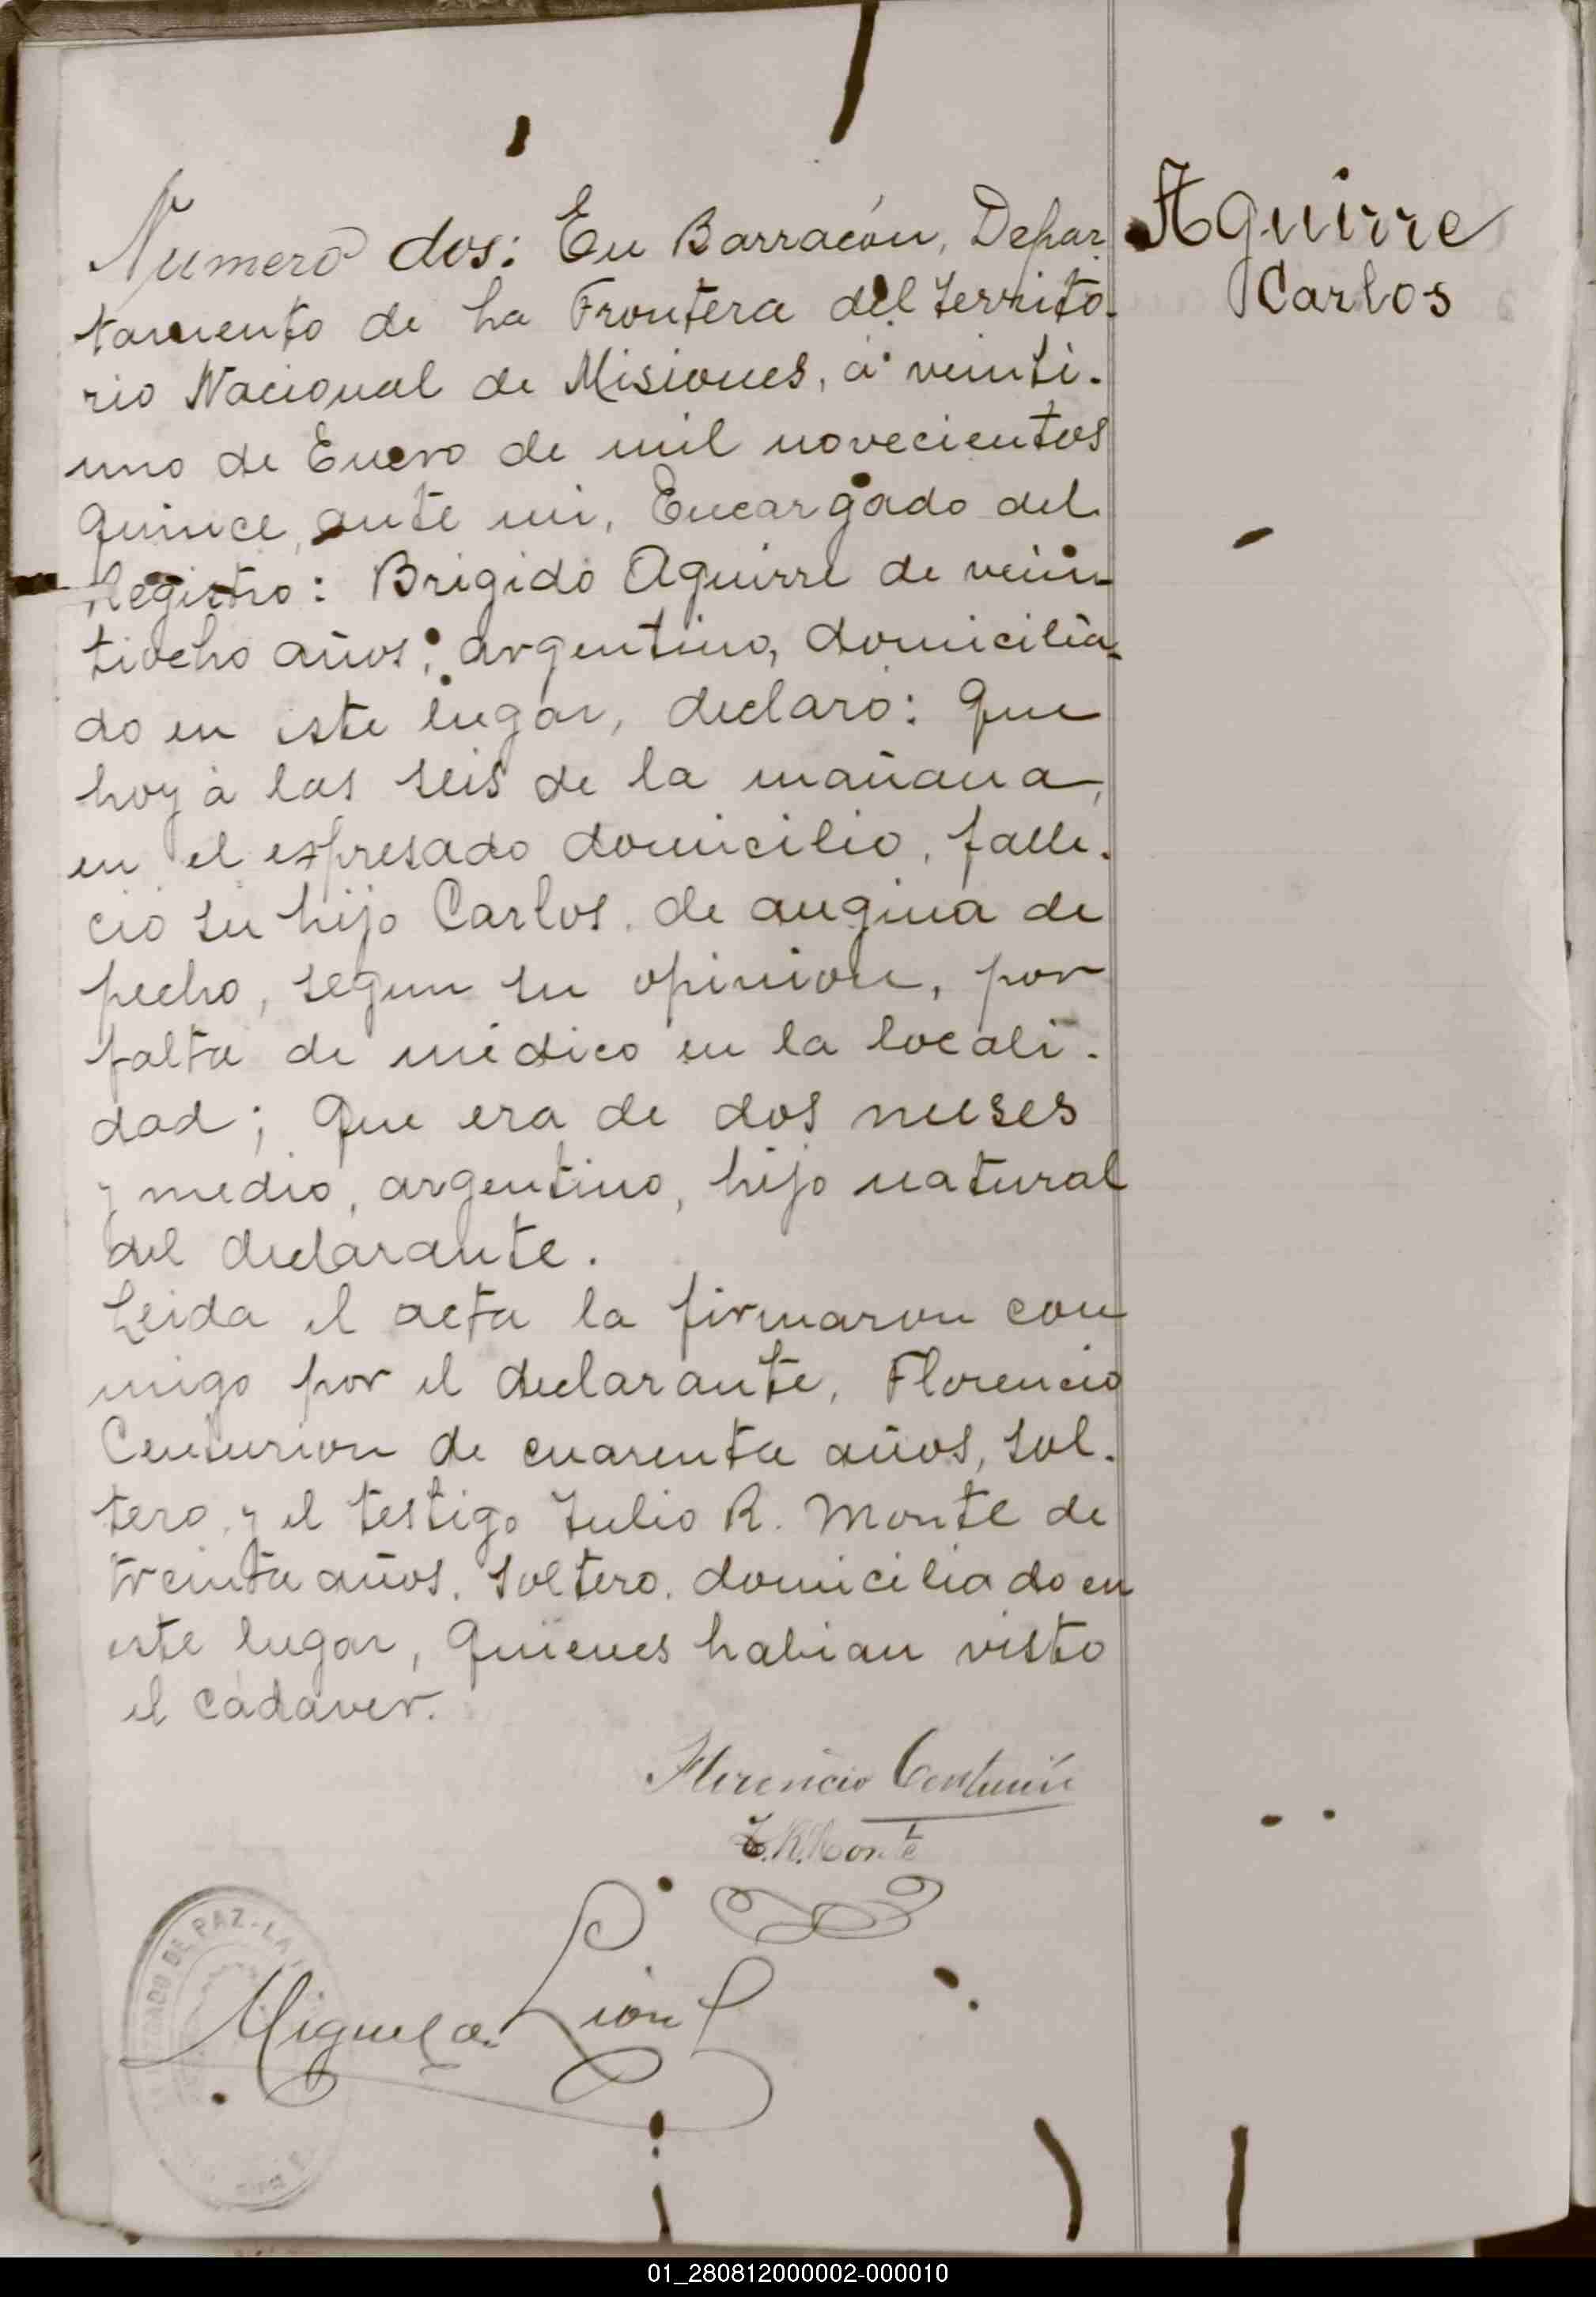 Numero dos: En Barracón, Depar-
tamento de La Frontera del Territo-
rio Nacional de Misiones, á veinti-
uno de Enero de mil novecientos
quince, ante mi, Encargado del
Registro: Brigido Aguirre de vein-
tiocho años, argentino, domicilia-
do en este lugar, declaró: Que
hoy á las seis de la mañana,
en el expresado domicilio, falle-
ció su hijo Carlos, de angina de
pecho, segun su opinion, por
falta de médico en la locali-
dad; Que era de dos meses
y medio, argentino, hijo natural
del declarante.
Leida el acta la firmaron con
migo por el declarante, Florencio
Centurion de cuarenta años, sol-
tero, y el testigo Julio R. Monte de
treinta años, soltero, domiciliado en
este lugar, quienes habian visto
el cádaver.
Aguirre
Carlos
Florencio Centurión
J. R. Monte
Miguel A. León
JUZGADO DE PAZ - LA
01_280812000002-000010